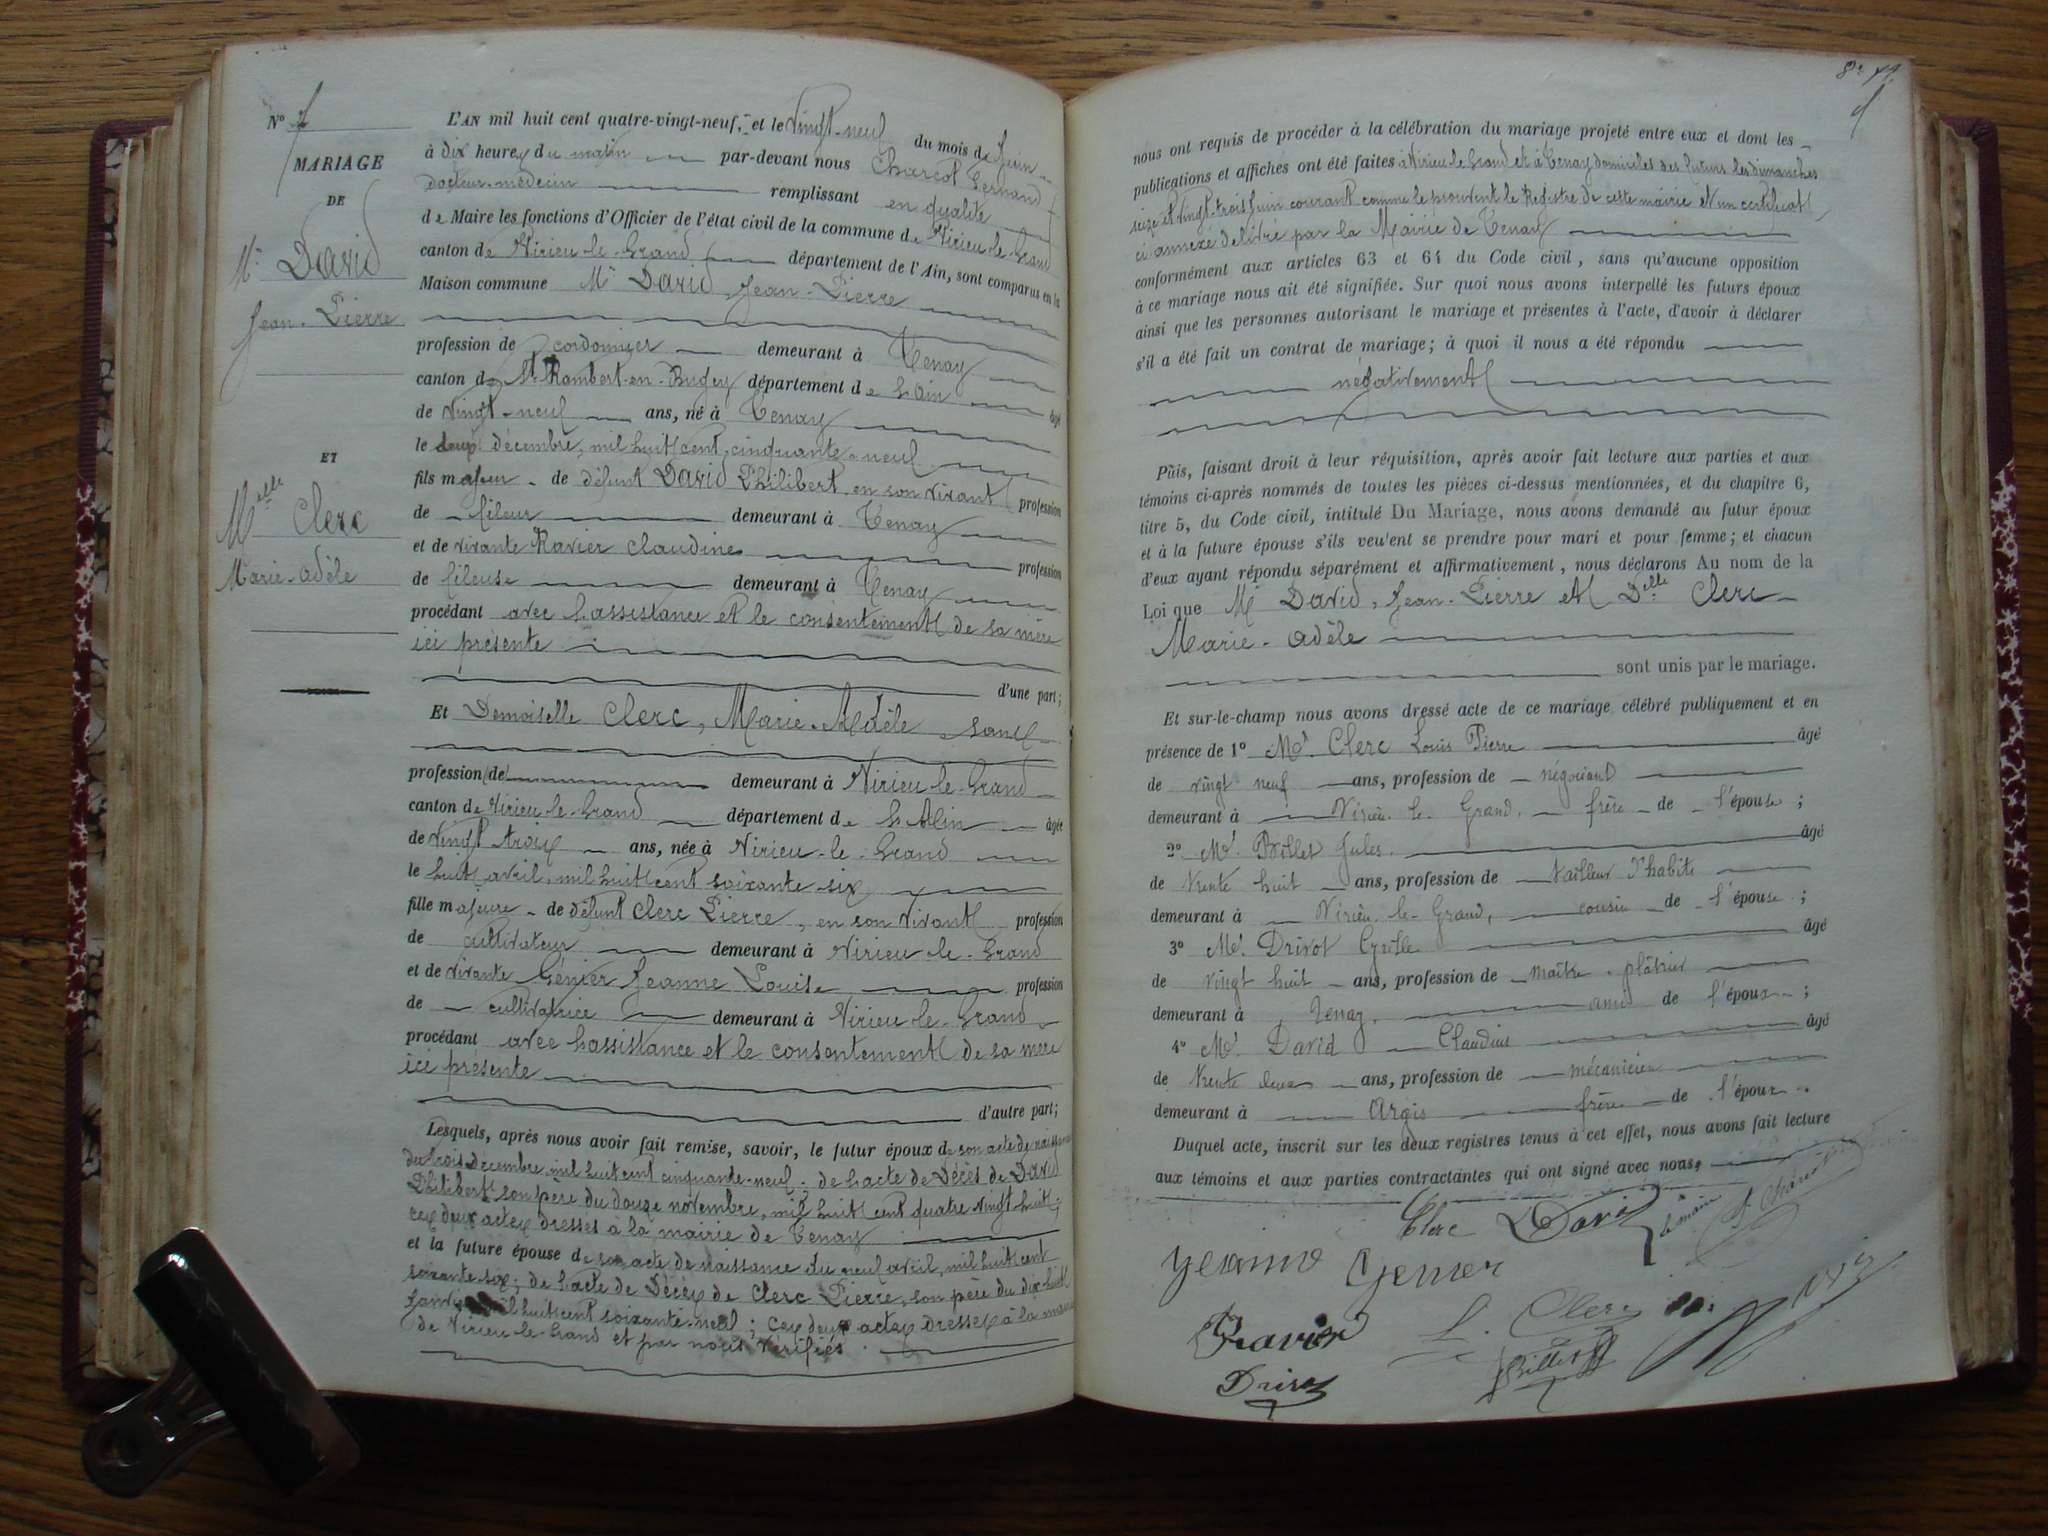 N° 7
MARIAGE
DE
Mr David
Jean-Pierre
ET
Melle Clerc
Marie-Adèle
L'AN mil huit cent quatre-vingt-neuf, et le Vingt-neuf du mois de Juin
à dix heures du matin par-devant nous Charcot Fernand
docteur-médecin remplissant en qualité
de Maire les fonctions d'Officier de l'état civil de la commune de Virieu-le-Grand
canton de Virieu-le-Grand département de l'Ain, sont comparus en la
Maison commune Mr David, Jean-Pierre
profession de cordonnier demeurant à Tenay
canton de St Rambert-en-Bugey département de L'Ain âgé
de Vingt-neuf ans, né à Tenay
le deux décembre, mil huit cent cinquante-neuf
fils majeur de défunt David Philibert, en son vivant profession
de fileur demeurant à Tenay
et de vivante Ravier Claudine profession
de fileuse demeurant à Tenay
procédant avec l'assistance et le consentement de sa mère
ici présente
d'une part;
Et Demoiselle Clerc, Marie-Adèle sans
profession (de) demeurant à Virieu-le-Grand
canton de Virieu-le-Grand département de L'Ain âgée
de Vingt trois ans, née à Virieu-le-Grand
le huit avril, mil huit cent soixante six
fille majeure de défunt Clerc Pierre, en son vivant profession
de cultivateur demeurant à Virieu-le-Grand
et de vivante Génier Jeanne Louise profession
de cultivatrice demeurant à Virieu-le-Grand
procédant avec l'assistance et le consentement de sa mère
ici présente
d'autre part;
Lesquels, après nous avoir fait remise, savoir, le futur époux de son acte de naissance
du trois décembre mil huit cent cinquante-neuf; de l'acte de Décès de David
Philibert son père du douze novembre, mil huit cent quatre vingt huit;
ces deux actes dressés à la mairie de Tenay
et la future épouse de son acte de naissance du neuf avril, mil huit cent
soixante-six; de l'acte de Décès de Clerc Pierre, son père du dix-huit
janvier mil huit cent soixante-neuf; ces deux actes dressés à la mairie
de Virieu-le-Grand et par nous vérifiés.
nous ont requis de procéder à la célébration du mariage projeté entre eux et dont les
publications et affiches ont été faites à Virieu-le-Grand et à Tenay domiciles des futurs les dimanches
seize et vingt-trois Juin courant comme le prouvent le Registre de cette mairie et un certificat
ci-annexé délivré par la Mairie de Tenay
conformément aux articles 63 et 64 du Code civil, sans qu'aucune opposition
à ce mariage nous ait été signifiée. Sur quoi nous avons interpellé les futurs époux
ainsi que les personnes autorisant le mariage et présentes à l'acte, d'avoir à déclarer
s'il a été fait un contrat de mariage; à quoi il nous a été répondu
négativement
Puis, faisant droit à leur réquisition, après avoir fait lecture aux parties et aux
témoins ci-après nommés de toutes les pièces ci-dessus mentionnées, et du chapitre 6,
titre 5, du Code civil, intitulé Du Mariage, nous avons demandé au futur époux
et à la future épouse s'ils veulent se prendre pour mari et pour femme; et chacun
d'eux ayant répondu séparément et affirmativement, nous déclarons Au nom de la
Loi que Mr David, Jean-Pierre et Delle Clerc
Marie-Adèle
sont unis par le mariage.
Et sur-le-champ nous avons dressé acte de ce mariage célébré publiquement et en
présence de 1° Mr Clerc Louis Pierre âgé
de vingt neuf ans, profession de négociant
demeurant à Virieu-le-Grand, frère de l'épouse;
2° Mr Billet Jules âgé
de trente huit ans, profession de tailleur d'habits
demeurant à Virieu-le-Grand, cousin de l'épouse;
3° Mr Drivot Cyrille âgé
de vingt huit ans, profession de maître plâtrier
demeurant à Tenay, ami de l'époux;
4° Mr David Claudius âgé
de trente deux ans, profession de mécanicien
demeurant à Argis frère de l'époux.
Duquel acte, inscrit sur les deux registres tenus à cet effet, nous avons fait lecture
aux témoins et aux parties contractantes qui ont signé avec nous.
Clerc David Le maire
Jeanne Genier
Ravier L. Clerc
Billet